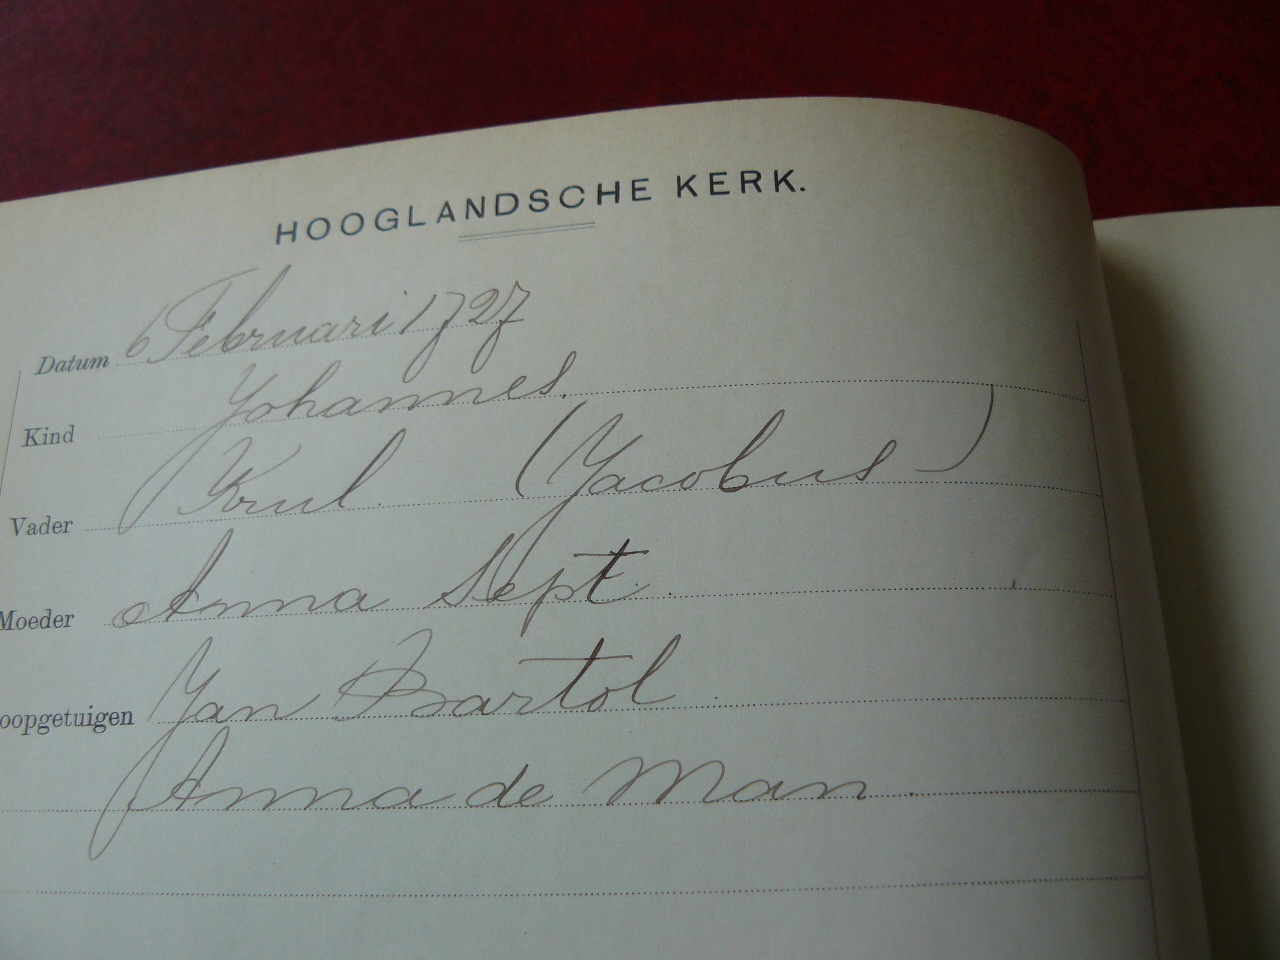 HOOGLANDSCHE KERK.
Datum 6 Februari 1727
Kind Johannes.
Vader Krul (Jacobus)
Moeder Anna Sept.
oopgetuigen Jan Bartol
Anna de Man